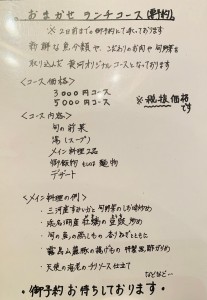 おまかせ ランチコース(要予約)
※2日前までの御予約にて承っております
新鮮な魚介類や、こだわりのお肉や旬野菜を
取り込んだ 奥河オリジナルコースとなっております
<コース価格>
3000円コース
5000円コース
※税抜価格です
<コース内容>
旬の前菜
湯(スープ)
メイン料理2品
御飯物もしくは麺物
デザート
<メイン料理の例>
・三河産すみいかと旬野菜のしお味炒め
・浜名湖産牡蠣の豆鼓炒め
・旬の魚の蒸しもの 香りねぎとともに
・霧島山麓豚の揚げもの 特製黒酢がらめ
・天使の海老のチリソース仕立て
などなど…
・御予約お待ちしております・